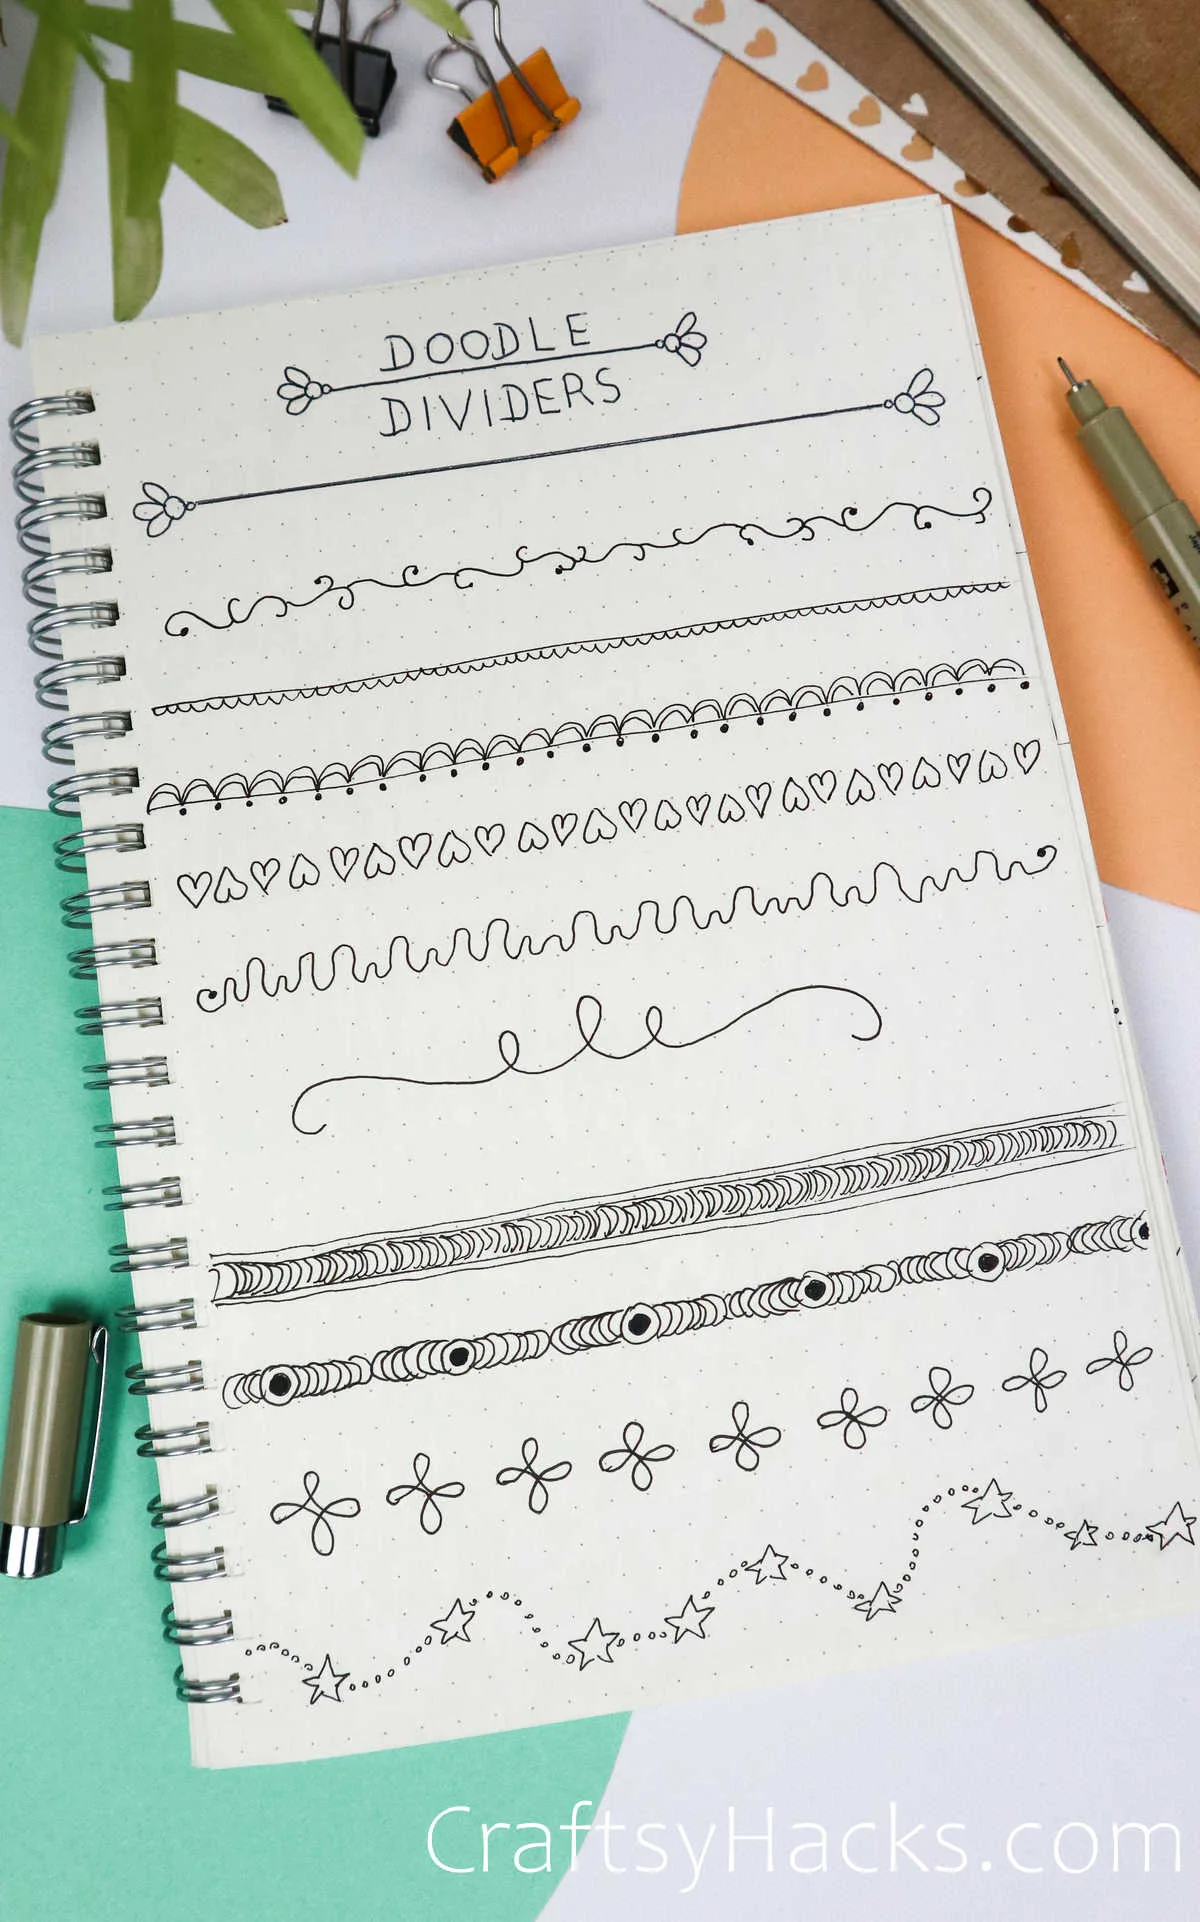 DOODLE
DIVIDERS
CraftsyHacks.com